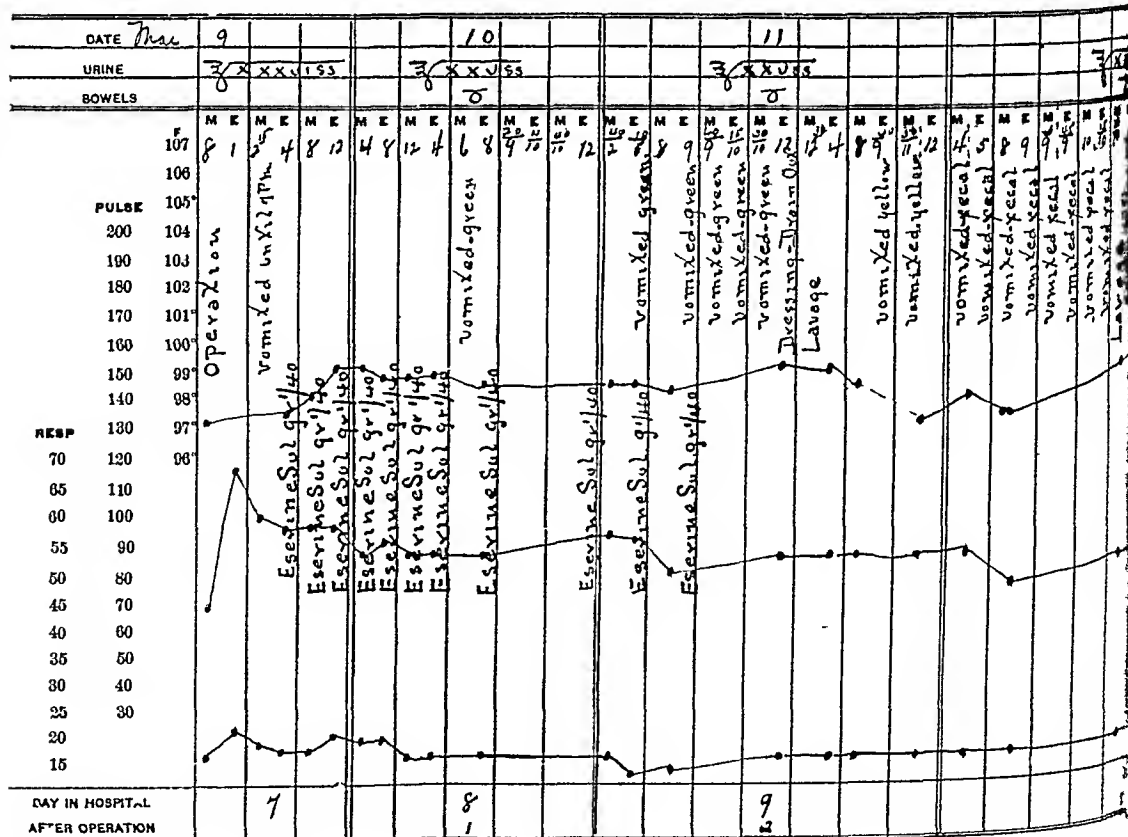 DATE Mar 9 10 11
URINE ℥ XXXVISS ℥ XXVSS ℥ XXVSS
BOWELS 0 0
M E M E M E M E M E M E M E M E M E M E M E M E M E M E M E M E M E
8 1 4 8 12 4 8 12 4 6 8 12 8 9 12 4 8 12 4 5 8 9
F
107
106
PULSE 105°
200 104
190 103
180 102
170 101°
160 100°
150 99°
140 98°
RESP 130 97°
70 120 96°
65 110
60 100
55 90
50 80
45 70
40 60
35 50
30 40
25 30
20
15
Operation
vomited until 7 Pm
Eserine Sul gr 1/40
Eserine Sul gr 1/40
Eserine Sul gr 1/40
Eserine Sul gr 1/40
Eserine Sul gr 1/40
Eserine Sul gr 1/40
Eserine Sul gr 1/40
vomited-green
Eserine Sul gr 1/40
Eserine Sul gr 1/40
vomited green
Eserine Sul g 1/40
vomited-green
Eserine Sul. gr 1/40
vomited-green
vomited-green
vomited-green
Dressing-Drain Out
Lavage
vomited yellow
vomited-yellow
vomited-fecal
vomited-fecal
vomited-fecal
vomited fecal
vomited-fecal
vomited fecal
vomited fecal
Lavage
DAY IN HOSPITAL 7 8 9
AFTER OPERATION 1 2